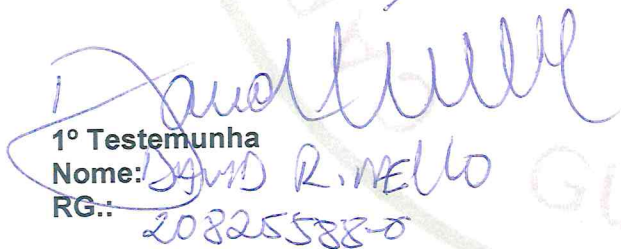 1º Testemunha
Nome: DAVID R. MELLO
RG.: 20825588-0